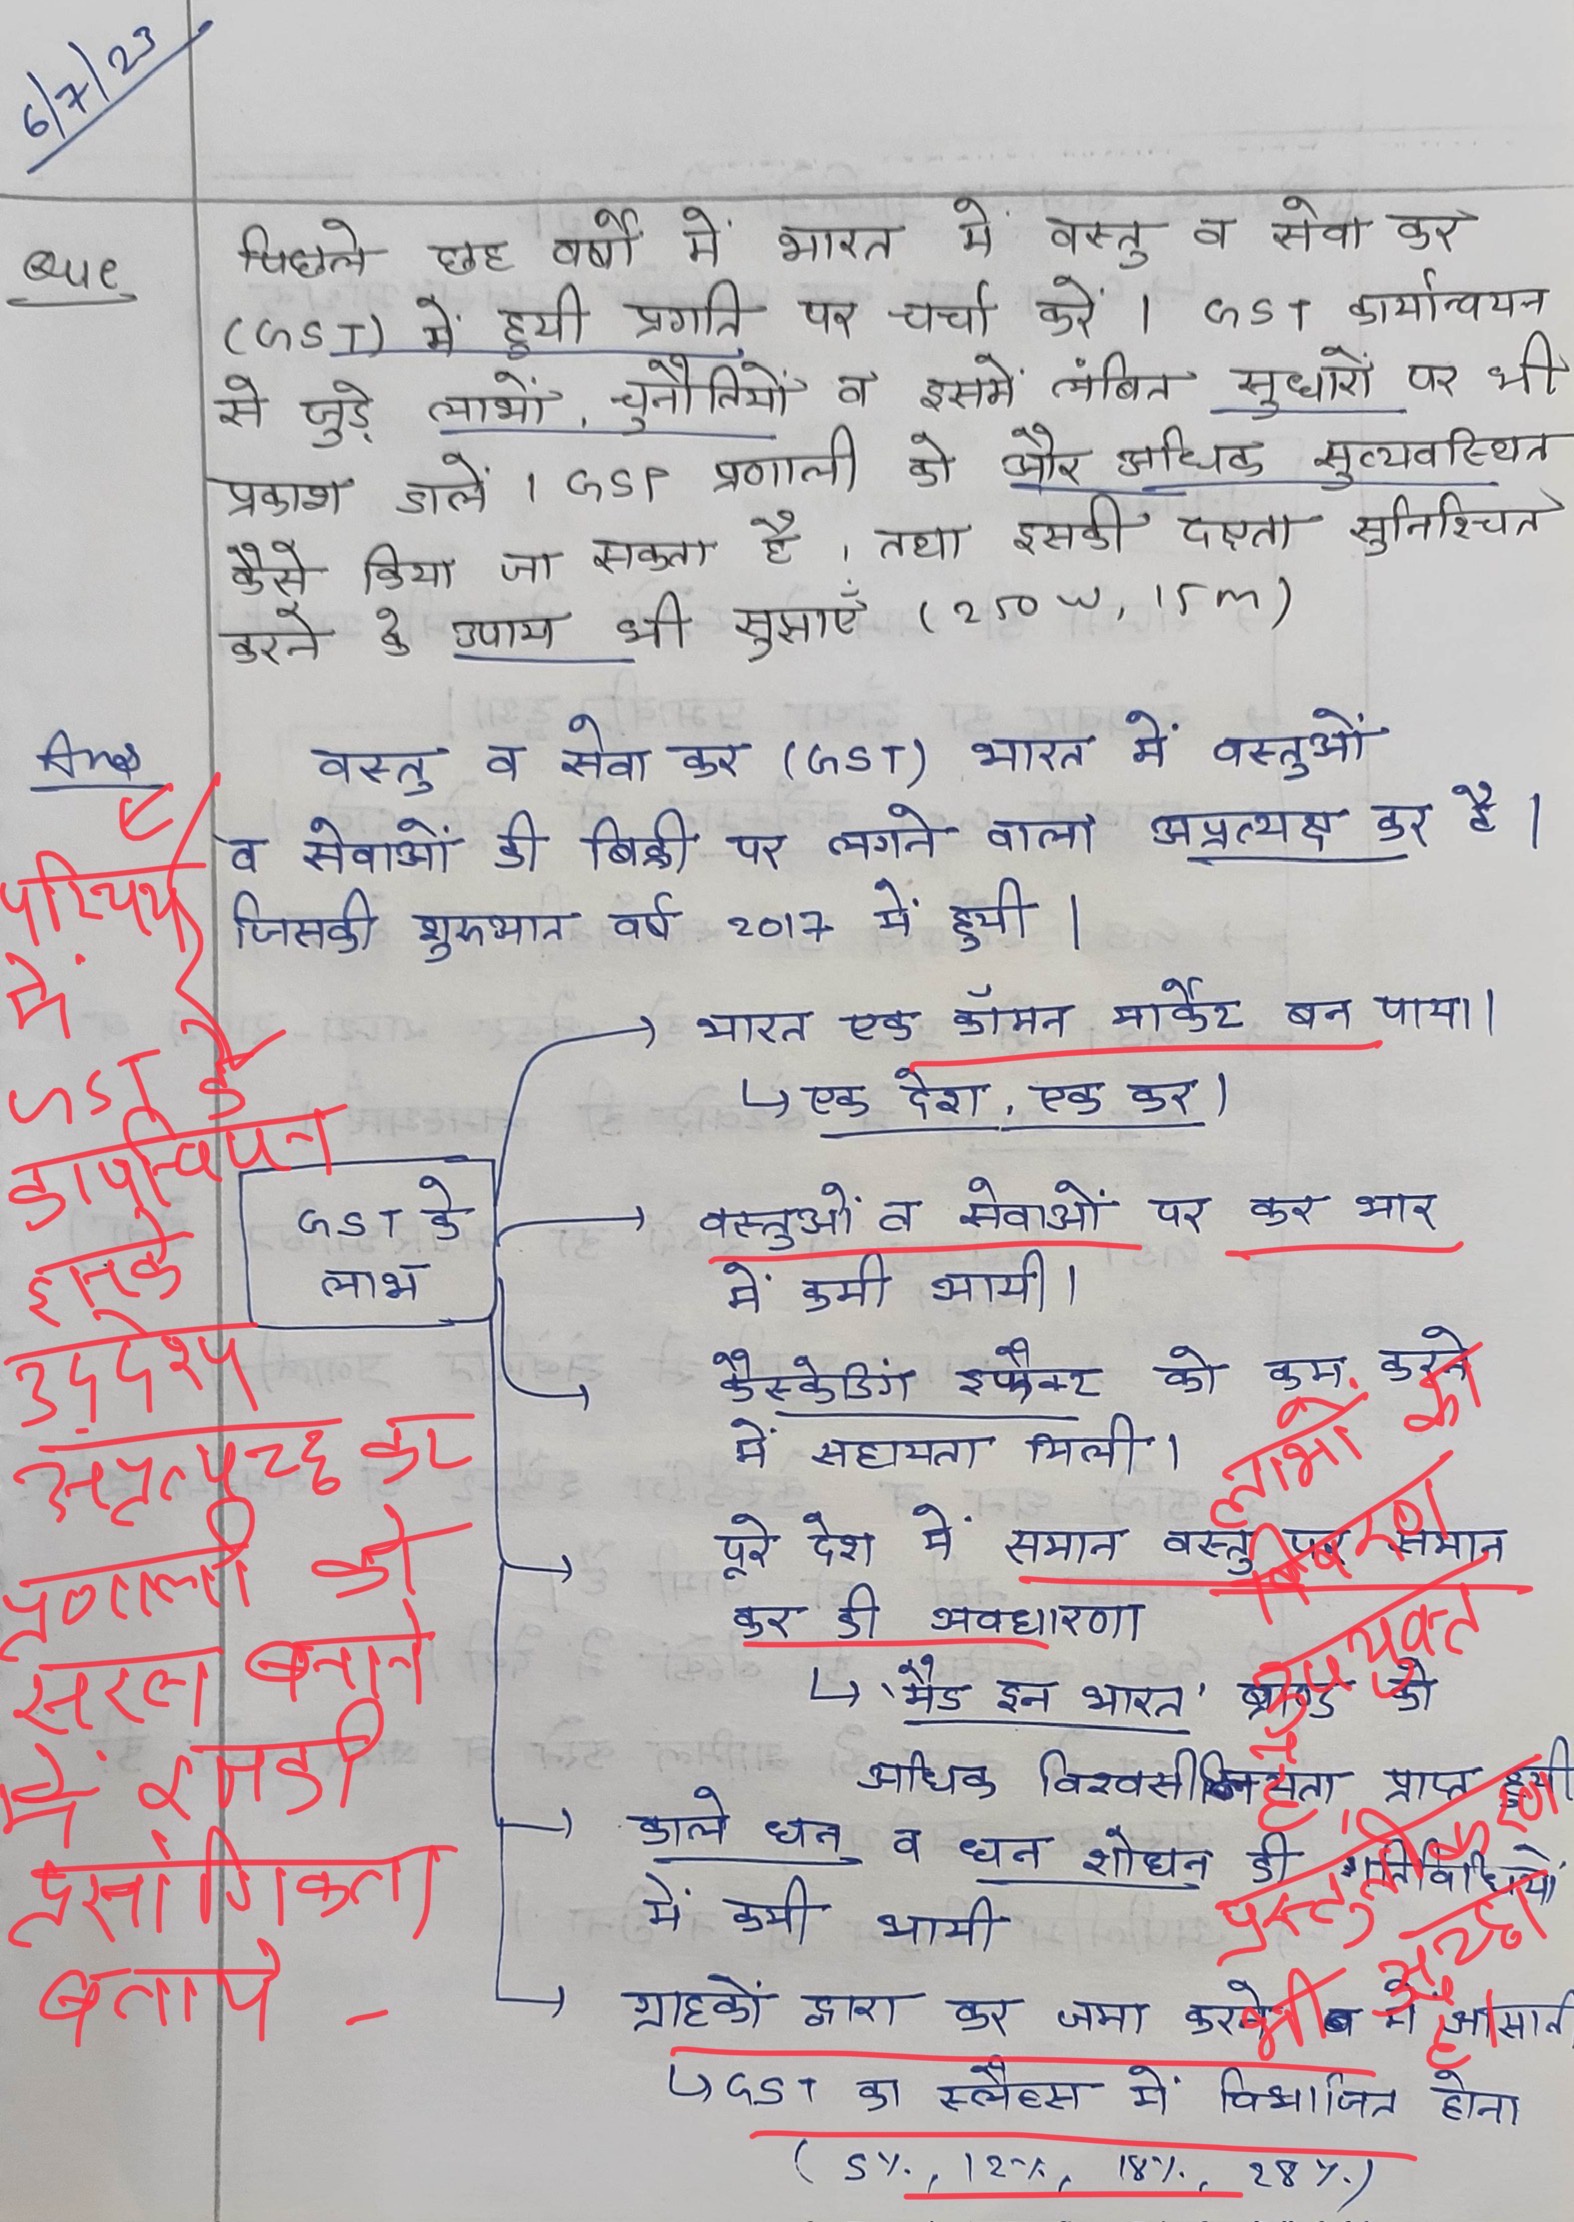 6/7/23
Que
पिछले छह वर्षों में भारत में वस्तु व सेवा कर
(GST) में हुयी प्रगति पर चर्चा करें । GST कार्यान्वयन
से जुड़े लाभों, चुनौतियों व इसमें लंबित सुधारों पर भी
प्रकाश डालें । GST प्रणाली को और अधिक सुव्यवस्थित
कैसे किया जा सकता है, तथा इसकी दक्षता सुनिश्चित
करने के उपाय भी सुझाएँ (250 W, 15 m)
Ans
वस्तु व सेवा कर (GST) भारत में वस्तुओं
व सेवाओं की बिक्री पर लगने वाला अप्रत्यक्ष कर है ।
जिसकी शुरुआत वर्ष 2017 में हुयी ।
परिचय
में
GST के
कार्यान्वयन
इसके
उद्देश्य
अप्रत्यक्ष कर
प्रणाली को
सरल बनाने
में इसकी
प्रासंगिकता
बताये -
GST के
लाभ
→ भारत एक कॉमन मार्केट बन पाया।
↳ एक देश, एक कर।
→ वस्तुओं व सेवाओं पर कर भार
में कमी आयी।
→ कैस्केडिंग इफैक्ट को कम करने
में सहायता मिली।
→ पूरे देश में समान वस्तु पर समान
कर की अवधारणा
↳ 'मैड इन भारत' ब्राण्ड को
अधिक विश्वसीनियता प्राप्त हुयी
→ काले धन व धन शोधन की गतिविधियों
में कमी आयी
→ ग्राहकों द्वारा कर जमा करने में आसानी
↳ GST का स्लैब्स में विभाजित होना
(5%, 12%, 18%, 28%)
लाभों का
विवरण
उपयुक्त
है,
प्रस्तुतीकरण
भी अच्छा
है।